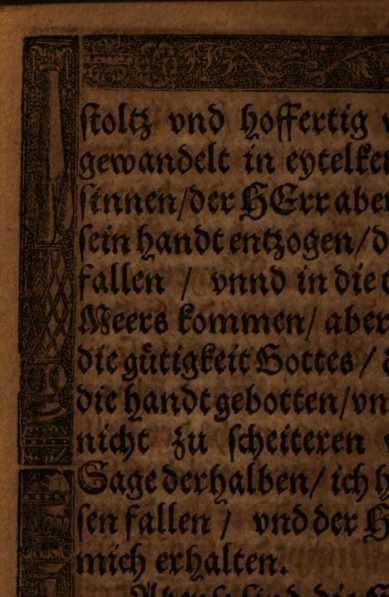 stoltz vnd hoffertig
gewandelt in eytelkei
sinnen/der HErr aber
sein handt entzogen/d
fallen / vnnd in die
Meers kommen/ aber
die gütigkeit Gottes /
die handt gebotten/vn
nicht zu scheiteren
Sage derhalben/ ich h
sen fallen / vnd der H
mich erhalten.